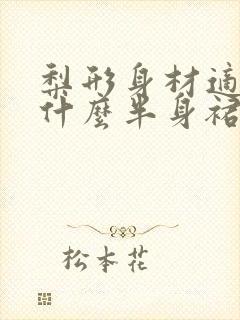 梨形身材適
什麼半身裙
松本花